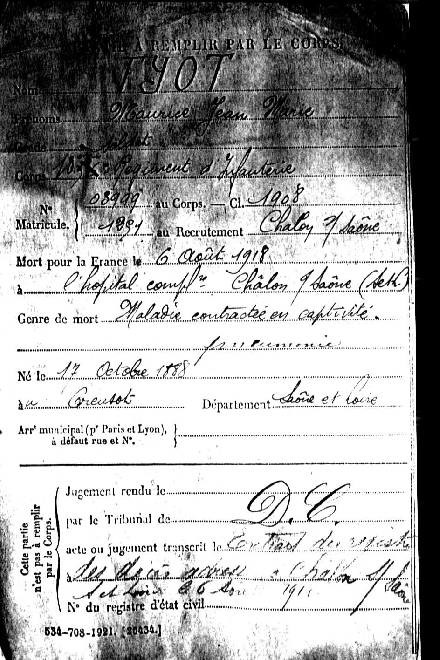 A REMPLIR PAR LE CORPS
Nom TYOT
Prénoms Maurice Jean
Grade soldat
Corps Régiment d'Infanterie
N° 08999 au Corps. — Cl. 1908
Matricule. 1891 au Recrutement Chalon s/Saône
Mort pour la France le 6 Août 1918
à l'hopital compl.re Châlon s/Saône (S et L)
Genre de mort Maladie contractée en captivité.
pneumonie
Né le 17 Octobre 1888
au Creusot Département Saône et Loire
Arr^t municipal (p^r Paris et Lyon),
à défaut rue et N°.
Cette partie
n'est pas à remplir
par le Corps.
Jugement rendu le
par le Tribunal de D.C.
acte ou jugement transcrit le Extrait du registre
des décès adressé à Chalon s/Saône
N° du registre d'état civil
534-708-1921. [26434.]